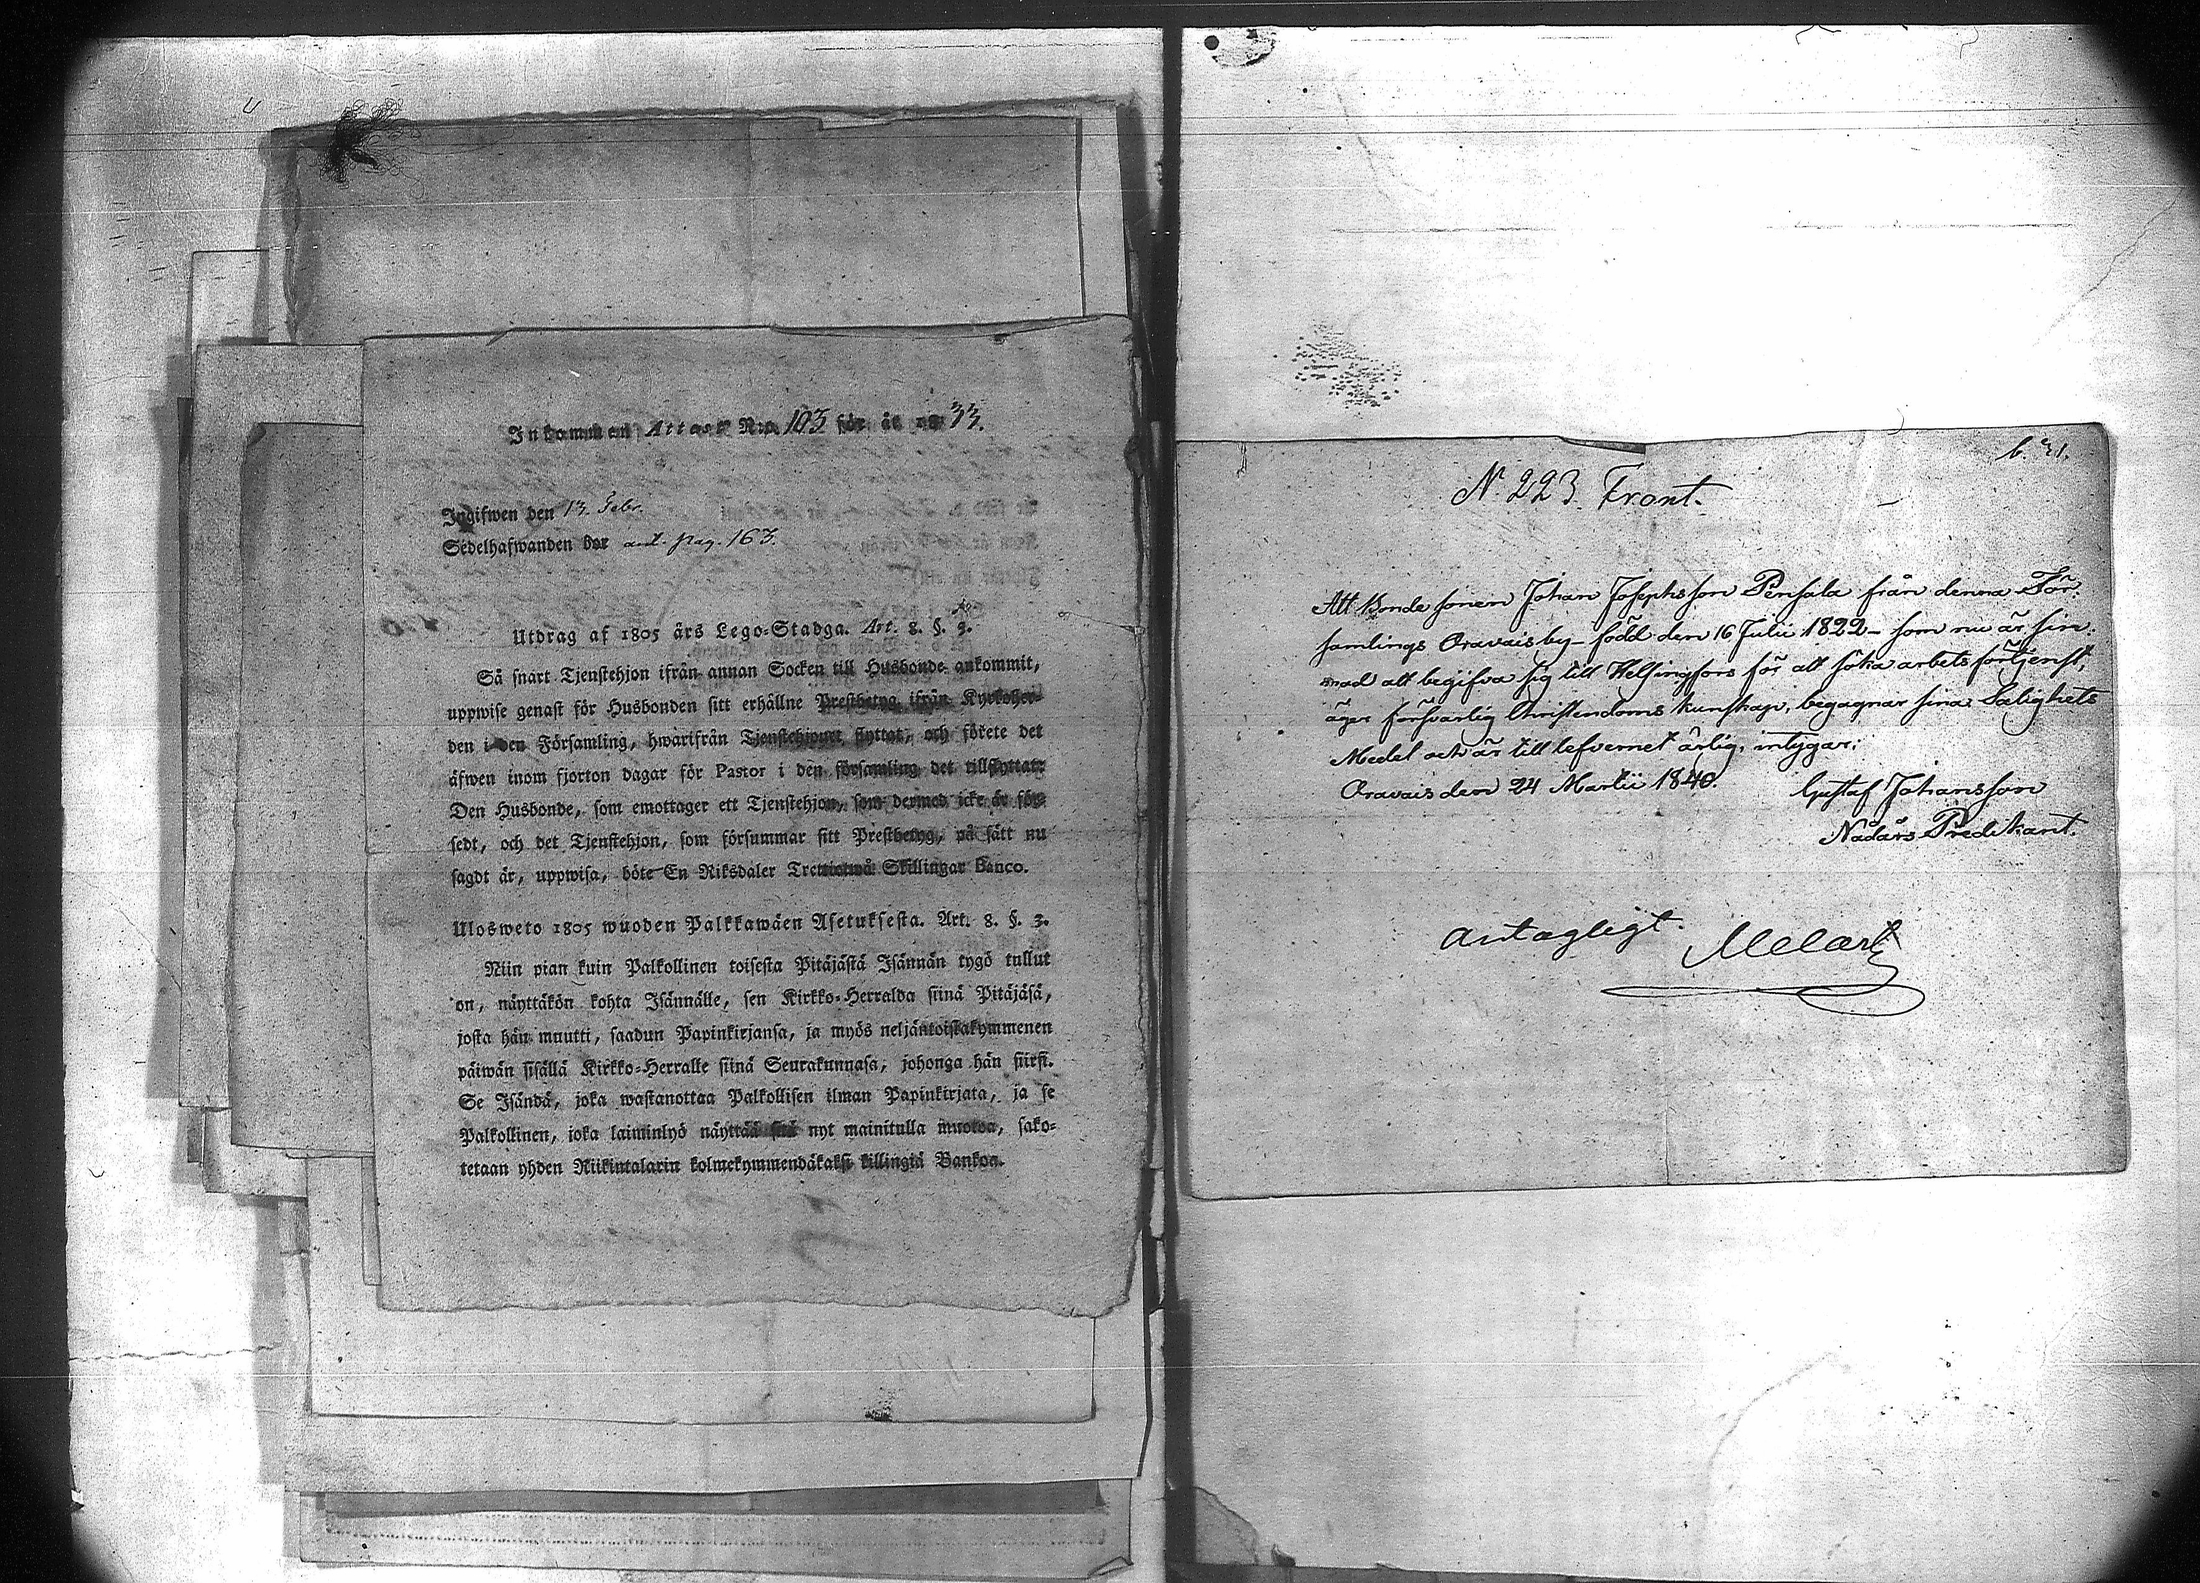 Inkommen Attest N:o 103 för år 1833.
Ingifwen den 13. Febr.
Sedelhafwanden bor ant. pag. 163.
Utdrag af 1805 års Lego-Stadga. Art. 8. §. 3.
Så snart Tjenstehjon ifrån annan Socken till Husbonde ankommit,
uppwise genast för Husbonden sitt erhållne Prestbetyg ifrån Kyrkoher-
den i den Församling, hwarifrån Tjenstehjonet flyttat, och förete det
äfwen inom fjorton dagar för Pastor i den församling det tillflyttat.
Den Husbonde, som emottager ett Tjenstehjon, som dermed icke är för-
sedt, och det Tjenstehjon, som försummar sitt Prestbetyg, på sätt nu
sagdt är, uppwisa, böte En Riksdaler Trettiotwå Skillingar Banco.
Ulosweto 1805 wuoden Palkkawäen Asetuksesta. Art. 8. §. 3.
Niin pian kuin Palkollinen toisesta Pitäjästä Isännän tygö tullut
on, näyttäkön kohta Isännälle, sen Kirkko-Herralda siinä Pitäjäsä,
josta hän muutti, saadun Papinkirjansa, ja myös neljäntoistakymmenen
päiwän sisällä Kirkko-Herralle siinä Seurakunnasa, johonga hän siirsi.
Se Isändä, joka wastanottaa Palkollisen ilman Papinkirjata, ja se
Palkollinen, joka laiminlyö näyttää sitä nyt mainitulla muotoa, sako-
tetaan yhden Riikintalarin kolmekymmendäkaksi killingiä Bankoa.
b. 31.
N. 223. Front.
Att Bonde sonen Johan Josephsson Pensala från denna För-
samlings Oravais by - född den 16 Julii 1822 - som nu är sin-
nad att begifva sig till Helsingfors för att söka arbetsförtjenst,
äger försvarlig Christendoms kunskap, begagnar sina Salighets
Medel och är till lefvernet ärlig, intygar;
Oravais den 24 Martii 1840.
Gustaf Johansson
Nådårs Predikant.
antagligt.
Melart